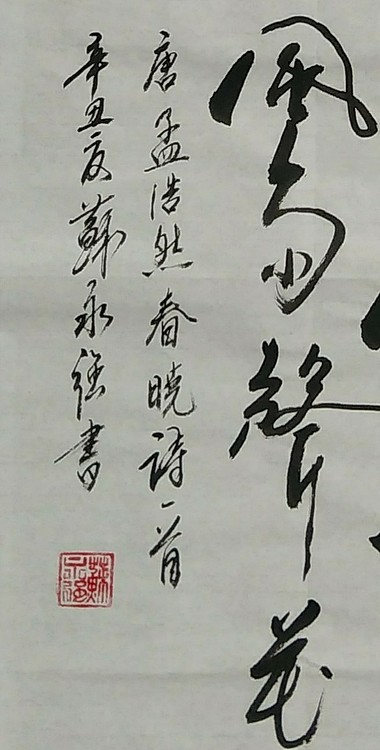 風雨聲花
唐孟浩然春曉詩一首
辛丑夏蘇永強書